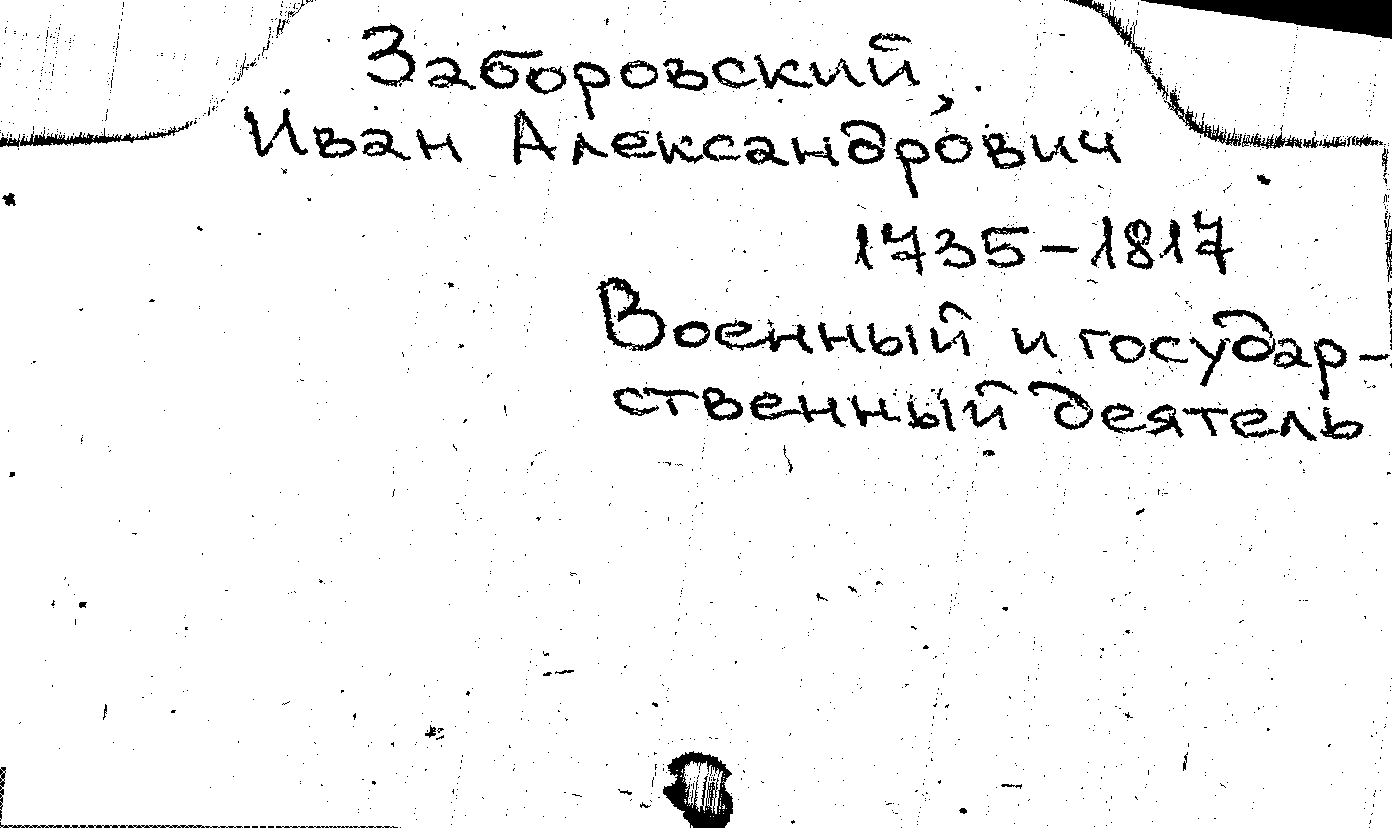 Заборовский,
Иван Александрович
1735-1817
Военный и государ-
ственный деятель